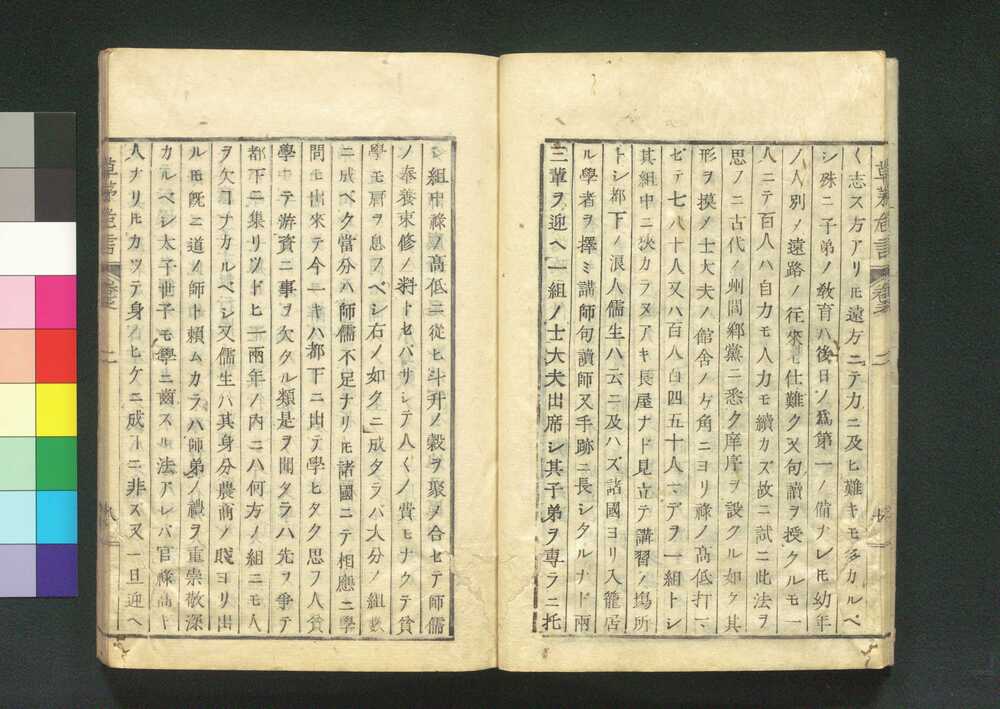 く志ス方アリㇳモ遠方ニテカニ及ヒ難キモ多カルベ
シ殊ニ子弟ノ敎育ハ後日ノ爲第一ノ備ナレㇳモ幼年
ノ人別ノ遠路ノ往來モ仕難ク又句讀ヲ授クルモ一
人ニテ百人ハ自力モ人力モ續カズ故ニ試ニ此法ヲ
思フニ古代ノ州閭鄕黨ニ悉ク庠序ヲ設クル如ク其
形ヲ摸メ士大夫ノ館舍ノケ角ニヨリ祿ノ高低打マ
ゼテ七八十人又ハ百人百四五十人マデヲ一組トシ
其組中ニ狹カラヌアキ長屋ナド見立テ講習ノ塲所
トシ都下ノ浪人儒生ハ云ニ及ハズ諸國ヨリ入籠居
ル學者ヲ擇ミ講師句讀師又手跡ニ長シタルナド兩
三輩ヲ迎ヘ一組ノ士大夫出席シ其子弟ヲ專ラニ托
シ組中祿ノ高低ニ從ヒ斗升ノ穀ヲ聚メ合セテ師儒
ノ奉養束修ノ料トセバサシテ人くノ費モナウテ貧
學モ肩ヲ息フベシ右ノ如クニ成タラバ大分ノ組數
ニ成ベク當分ハ師儒不足ナリㇳモ諸國ニテ相應ニ學
問モ出來テ今一キハ都下ニ出テ學ヒタク思フ人貧
學ニテ游資ニ事ヲ欠タル類是ヲ聞タラハ先ヲ爭テ
都下ニ集リツドヒ一兩年ノ内ニハ何方ノ組ニモ人
ヲ欠コナカルベシ又儒生ハ其身分農商ノ賤ヨリ出
ルㇳモ旣ニ道ノ師ト賴ムカラハ師弟ノ禮ヲ重崇敬深
カルベシ太子世子モ學ニ齒スル法アレバ官祿高ト
人ナリㇳモカツテ身ノヒケニ成コニ非ス又一旦迎ヘ
草茅危言
卷之
二
草茅危言
卷之
二